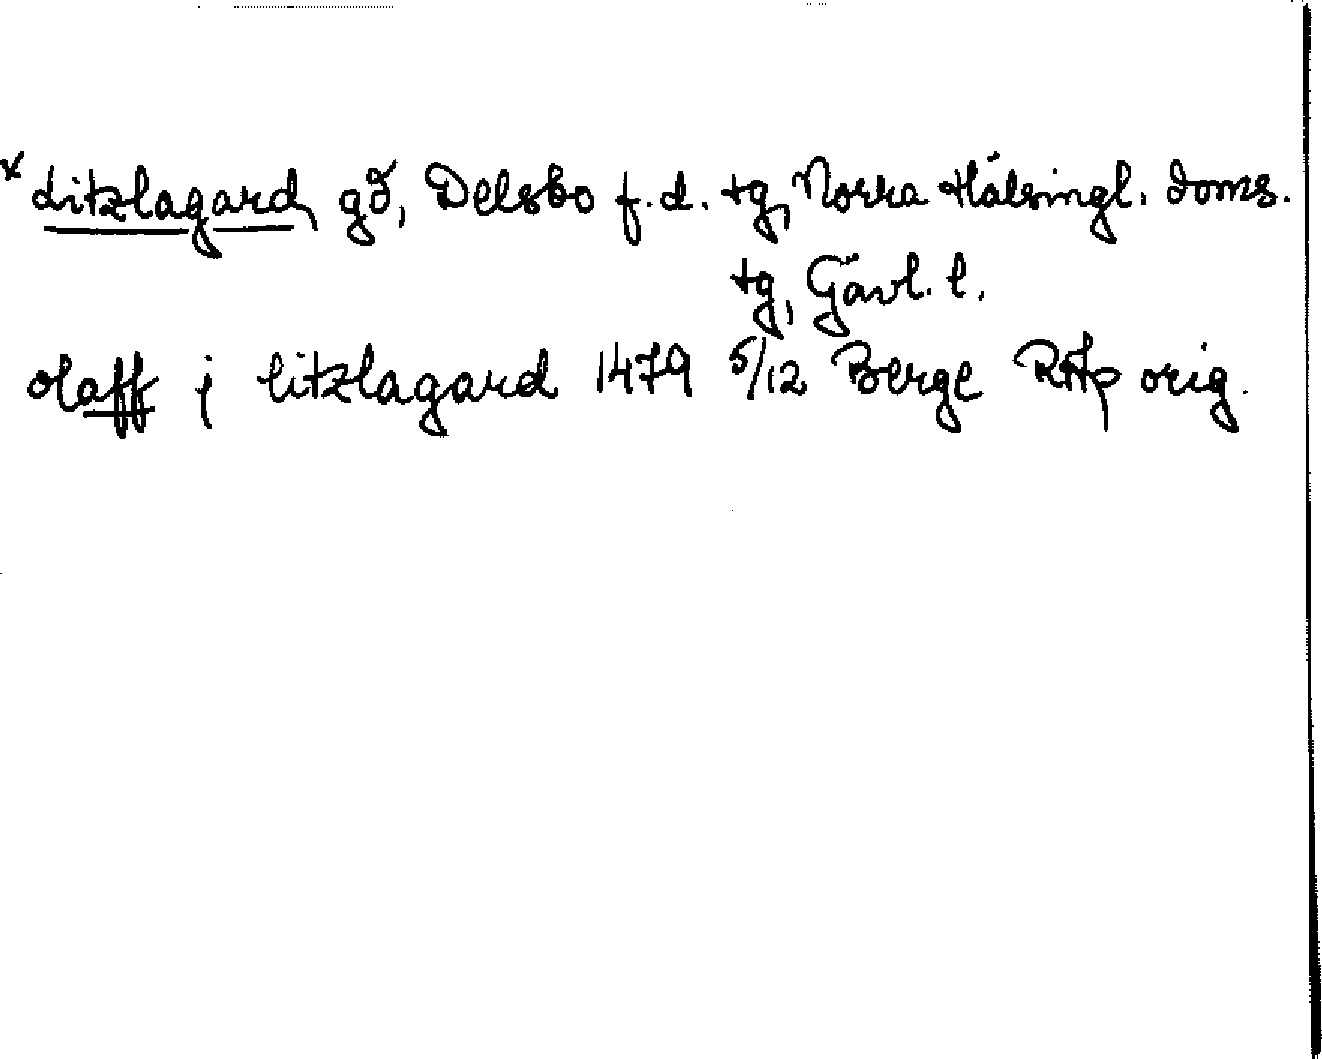 * Litzlagard, gd, Delsbo f.d. tg, Norra Hälsingl. doms.
tg, Gävl. l.
olaff j litzlagard 1479 5/12 Berge RAp orig.